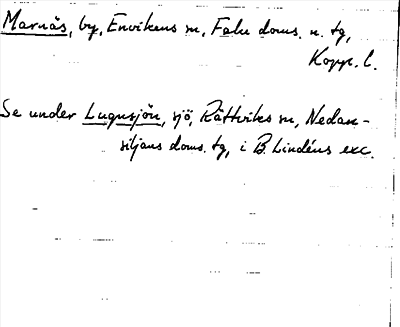 Marnäs, by, Envikens sn, Falu doms. n. tg,
Kopp. l.
Se under Lugnsjön, sjö, Rättviks sn, Nedan-
siljans doms. tg, i B. Lindéns exc.